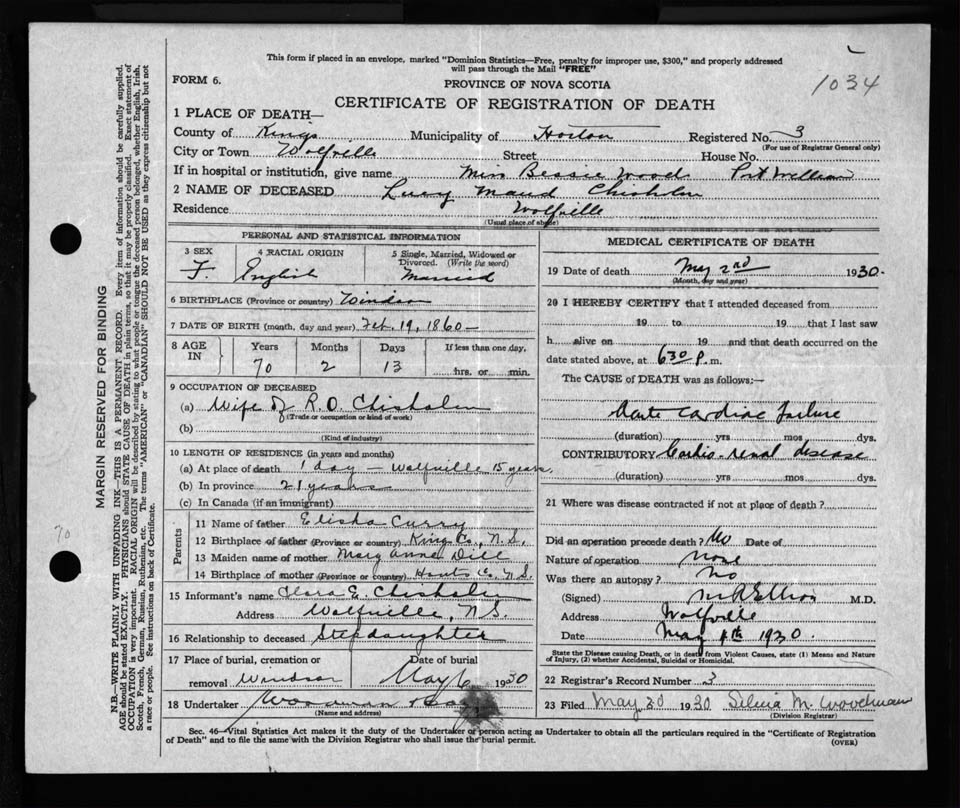 This form if placed in an envelope, marked "Dominion Statistics—Free, penalty for improper use, $300," and properly addressed
will pass through the Mail "FREE"
1034
FORM 6.
PROVINCE OF NOVA SCOTIA
CERTIFICATE OF REGISTRATION OF DEATH
1 PLACE OF DEATH—
County of Kings Municipality of Horton Registered No. 3
(For use of Registrar General only)
City or Town Wolfville Street House No.
If in hospital or institution, give name Miss Bessie Wood Port William
2 NAME OF DECEASED Lucy Maud Chisholm
Residence Wolfville
(Usual place of abode)
PERSONAL AND STATISTICAL INFORMATION
3 SEX F
4 RACIAL ORIGIN English
5 Single, Married, Widowed or Divorced. (Write the word) Married
6 BIRTHPLACE (Province or country) Windsor
7 DATE OF BIRTH (month, day and year) Feb. 19, 1860—
8 AGE IN Years Months Days If less than one day.
70 2 13 hrs. or min.
9 OCCUPATION OF DECEASED
(a) Wife of R.O. Chisholm
(Trade or occupation or kind of work)
(b)
(Kind of industry)
10 LENGTH OF RESIDENCE (in years and months)
(a) At place of death 1 day — Wolfville 15 years.
(b) In province 21 years
(c) In Canada (if an immigrant)
Parents
11 Name of father Elisha Curry
12 Birthplace of father (Province or country) Kings Co., N.S.
13 Maiden name of mother Mary Anne Dill
14 Birthplace of mother (Province or country) Hants Co. N.S.
15 Informant's name Clara E. Chisholm
Address Wolfville, N.S.
16 Relationship to deceased Stepdaughter
17 Place of burial, cremation or removal Windsor
Date of burial May 6 1930
18 Undertaker Woodman &
(Name and address)
MEDICAL CERTIFICATE OF DEATH
19 Date of death May 2nd 1930.
(Month, day and year)
20 I HEREBY CERTIFY that I attended deceased from
19 to 19 that I last saw
h alive on 19 and that death occurred on the
date stated above, at 6.30 P. m.
The CAUSE of DEATH was as follows:—
Acute cardiac failure
(duration) yrs mos dys.
CONTRIBUTORY Cardio-renal disease
(duration) yrs mos dys.
21 Where was disease contracted if not at place of death?
Did an operation precede death? No Date of
Nature of operation none
Was there an autopsy? No
(Signed) M.R. Elliott M.D.
Address Wolfville
Date May 4th 1930.
State the Disease causing Death, or in death from Violent Causes, state (1) Means and Nature
of Injury, (2) whether Accidental, Suicidal or Homicidal.
22 Registrar's Record Number 3
23 Filed May 30 1930 Silvia M. Woodman
(Division Registrar)
Sec. 46—Vital Statistics Act makes it the duty of the Undertaker or person acting as Undertaker to obtain all the particulars required in the "Certificate of Registration
of Death" and to file the same with the Division Registrar who shall issue the burial permit.
(OVER)
MARGIN RESERVED FOR BINDING
N.B.—WRITE PLAINLY WITH UNFADING INK—THIS IS A PERMANENT RECORD. Every item of information should be carefully supplied.
AGE should be stated EXACTLY. PHYSICIANS should STATE CAUSE OF DEATH in plain terms, so that it may be properly classified. Exact statement of
OCCUPATION is very important. RACIAL ORIGIN will be described by stating to what people or tongue the deceased person belonged, whether English, Irish,
Scotch, French, German, Russian, Ruthenian, etc. The terms "AMERICAN" or "CANADIAN" SHOULD NOT BE USED as they express citizenship but not
a race or people. See instructions on back of Certificate.
70